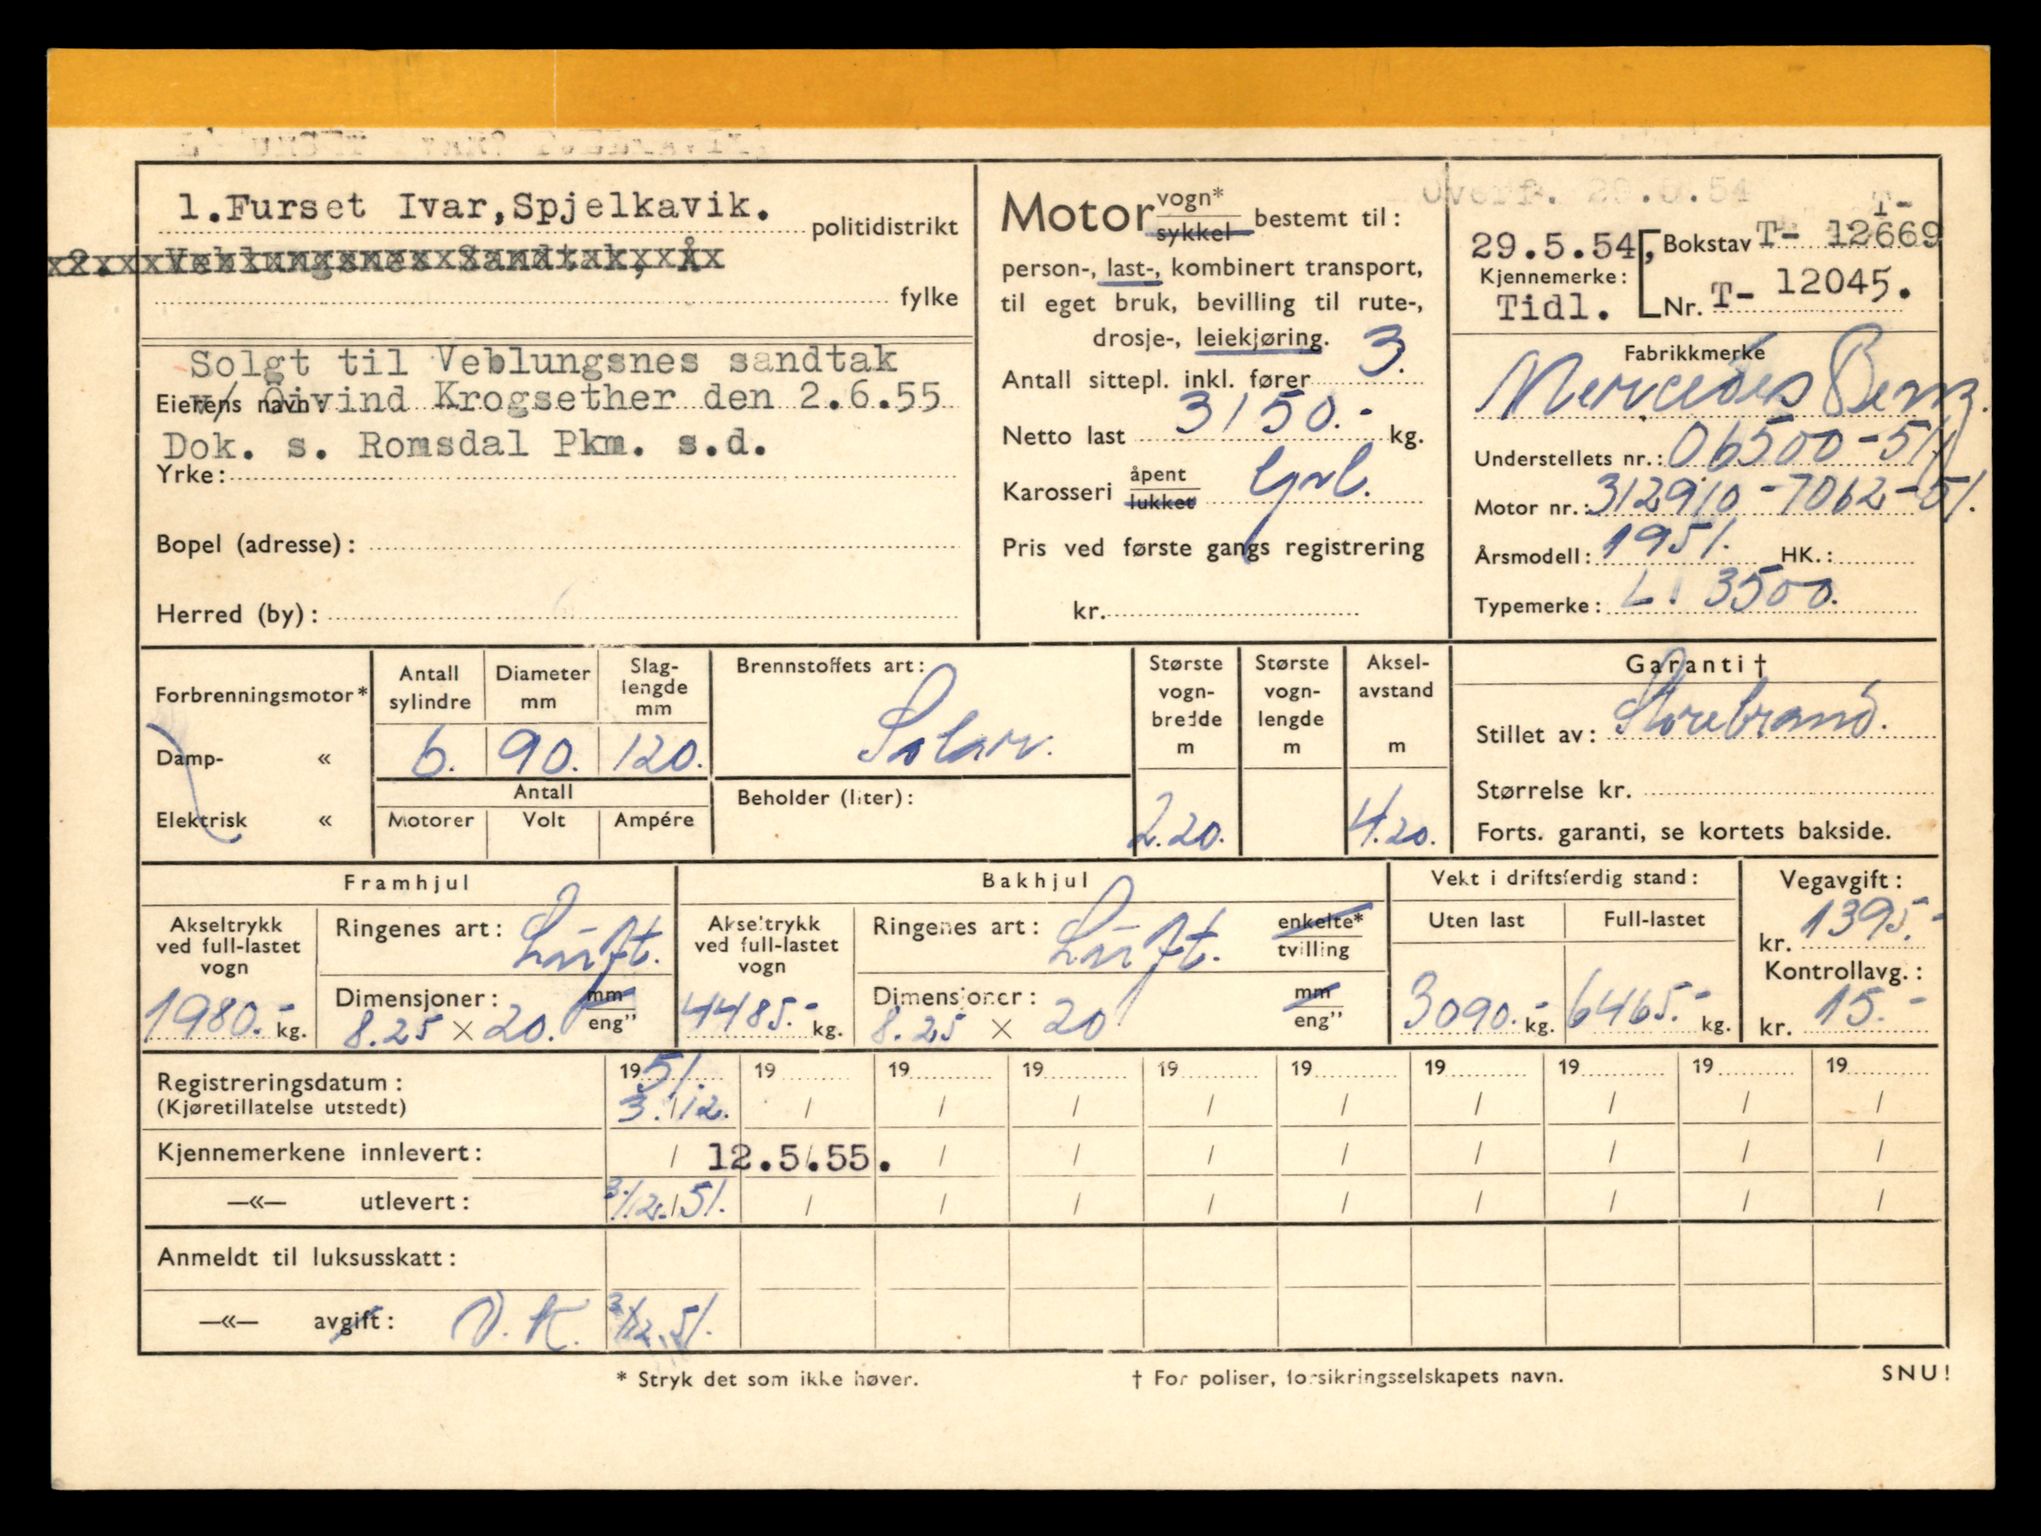 1.Furset Ivar,Spjelkavik.
politidistrikt
2. Veblungsnes Sandtak, Å
fylke
Solgt til Veblungsnes sandtak
Eierens navn: v/ Öivind Krogsether den 2.6.55
Dok. s. Romsdal Pkm. s.d.
Yrke:
Bopel (adresse):
Herred (by):
Motor vogn* / sykkel bestemt til:
person-, last-, kombinert transport,
til eget bruk, bevilling til rute-,
drosje-, leiekjøring.
Antall sittepl. inkl. fører 3.
Netto last 3150.- kg.
Karosseri åpent / lukket
Pris ved første gangs registrering
kr.
Overf. 29.5.54
29.5.54, Bokstav T- 12669
T-
Kjennemerke:
Tidl. Nr. T- 12045.
Fabrikkmerke
Mercedes Benz.
Understellets nr.: 06500-51
Motor nr.: 312910-7062-51.
Årsmodell: 1951. HK.:
Typemerke: L. 3500.
Forbrenningsmotor*
Damp- «
Elektrisk «
Antall sylindre 6.
Diameter mm 90.
Slag-lengde mm 120.
Antall
Motorer Volt Ampére
Brennstoffets art: Solar.
Beholder (liter):
Største vogn-bredde m 2.20.
Største vogn-lengde m
Aksel-avstand m 4.20.
Garanti †
Stillet av: Storebrand.
Størrelse kr.
Forts. garanti, se kortets bakside.
Framhjul
Akseltrykk ved full-lastet vogn 1980.- kg.
Ringenes art: Luft.
Dimensjoner: 8.25 × 20. mm / eng"
Bakhjul
Akseltrykk ved full-lastet vogn 4485.- kg.
Ringenes art: Luft. enkelte* / tvilling
Dimensjoner: 8.25 × 20 mm / eng"
Vekt i driftsferdig stand:
Uten last 3090.- kg.
Full-lastet 6465.- kg.
Vegavgift:
kr. 1395.-
Kontrollavg.:
kr. 15.-
Registreringsdatum: 1951. 19 19 19 19 19 19 19 19 19
(Kjøretillatelse utstedt) 3./12. / / / / / / / / /
Kjennemerkene innlevert: / 12.5.55. / / / / / / / /
—«— utlevert: 3/12.51. / / / / / / / / /
Anmeldt til luksusskatt:
—«— avgift: O.K. 3/12.51.
* Stryk det som ikke høver.
† For poliser, forsikringsselskapets navn.
SNU!